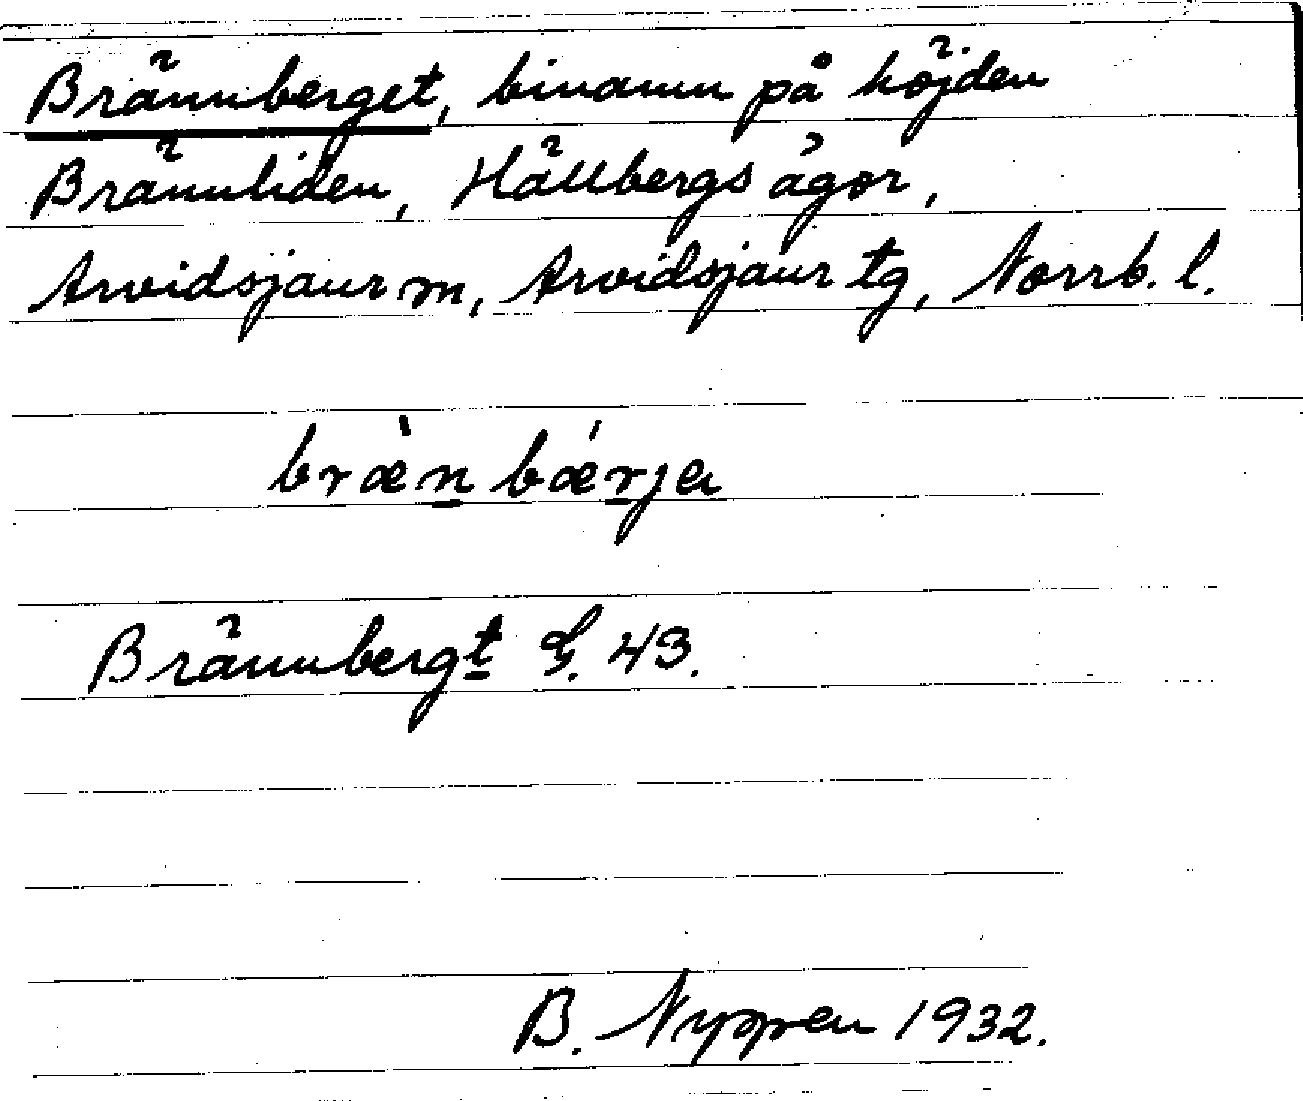 Brännberget, binamn på höjden
Brännliden, Hällbergs ägor,
Arvidsjaur m, Arvidsjaur tg, Norrb. l.
bræ̀n̲ bǽr̲ja
Brännbergt̲ 43.
B. 1932.